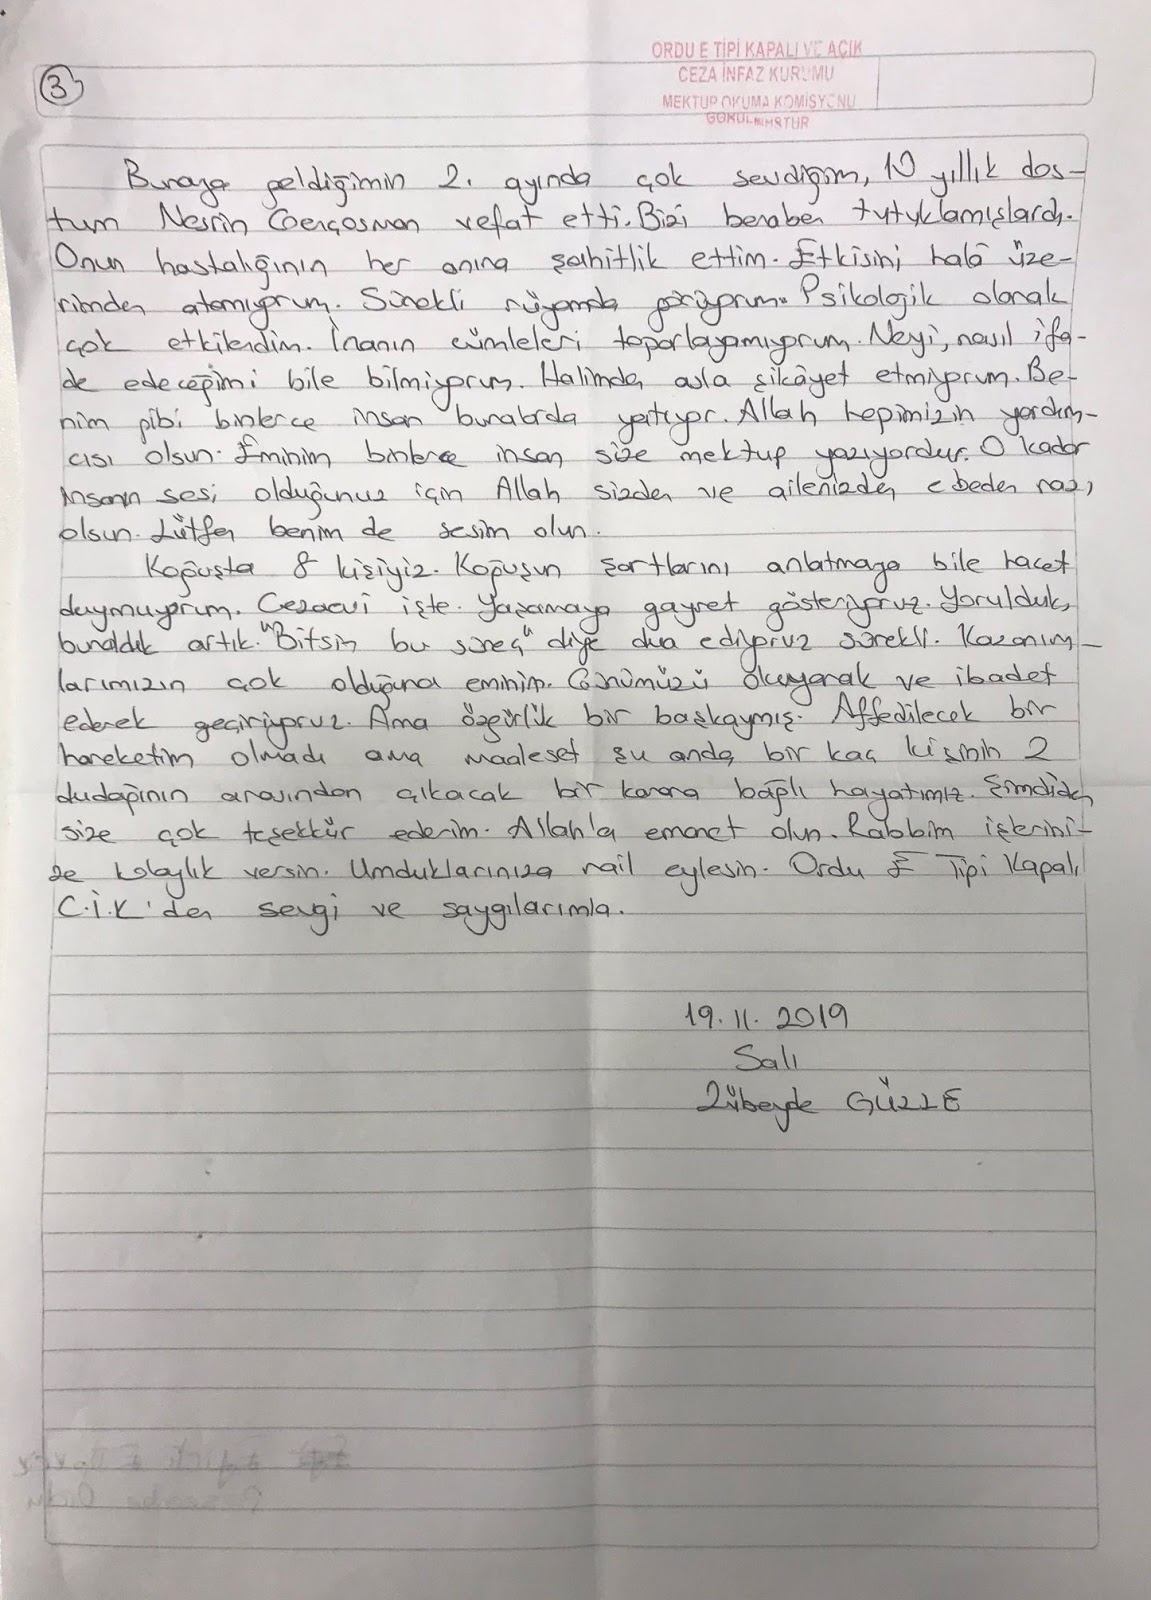 3
ORDU E TİPİ KAPALI VE AÇIK
CEZA İNFAZ KURUMU
MEKTUP OKUMA KOMİSYONU
GÖRÜLMÜŞTÜR
Buraya geldiğimin 2. ayında çok sevdiğim, 10 yıllık dos-
tum Nesrin Gençosman vefat etti. Bizi beraber tutuklamışlardı.
Onun hastalığının her anına şahitlik ettim. Etkisini halâ üze-
rimden atamıyorum. Sürekli rüyamda görüyorum. Psikolojik olarak
çok etkilendim. İnanın cümleleri toparlayamıyorum. Neyi, nasıl ifa-
de edeceğimi bile bilmiyorum. Halimden asla şikâyet etmiyorum. Be-
nim gibi binlerce insan buralarda yatıyor. Allah hepimizin yardım-
cısı olsun. Eminim binlerce insan size mektup yazıyordur. O kadar
insanın sesi olduğunuz için Allah sizden ve ailenizden ebeden razı
olsun. Lütfen benim de sesim olun.
Koğuşta 8 kişiyiz. Koğuşun şartlarını anlatmaya bile hacet
duymuyorum. Cezaevi işte. Yaşamaya gayret gösteriyoruz. Yorulduk,
bunaldık artık. "Bitsin bu süreç" diye dua ediyoruz sürekli. Kazanım-
larımızın çok olduğuna eminim. Günümüzü okuyarak ve ibadet
ederek geçiriyoruz. Ama özgürlük bir başkaymış. Affedilecek bir
hareketim olmadı ama maalesef şu anda bir kaç kişinin 2
dudağının arasından çıkacak bir karara bağlı hayatımız. Şimdiden
size çok teşekkür ederim. Allah'a emanet olun. Rabbim işlerini-
ze kolaylık versin. Umduklarınıza nail eylesin. Ordu E Tipi Kapalı
C.İ.K'den sevgi ve saygılarımla.
19.11.2019
Salı
Zübeyde GÜZZE